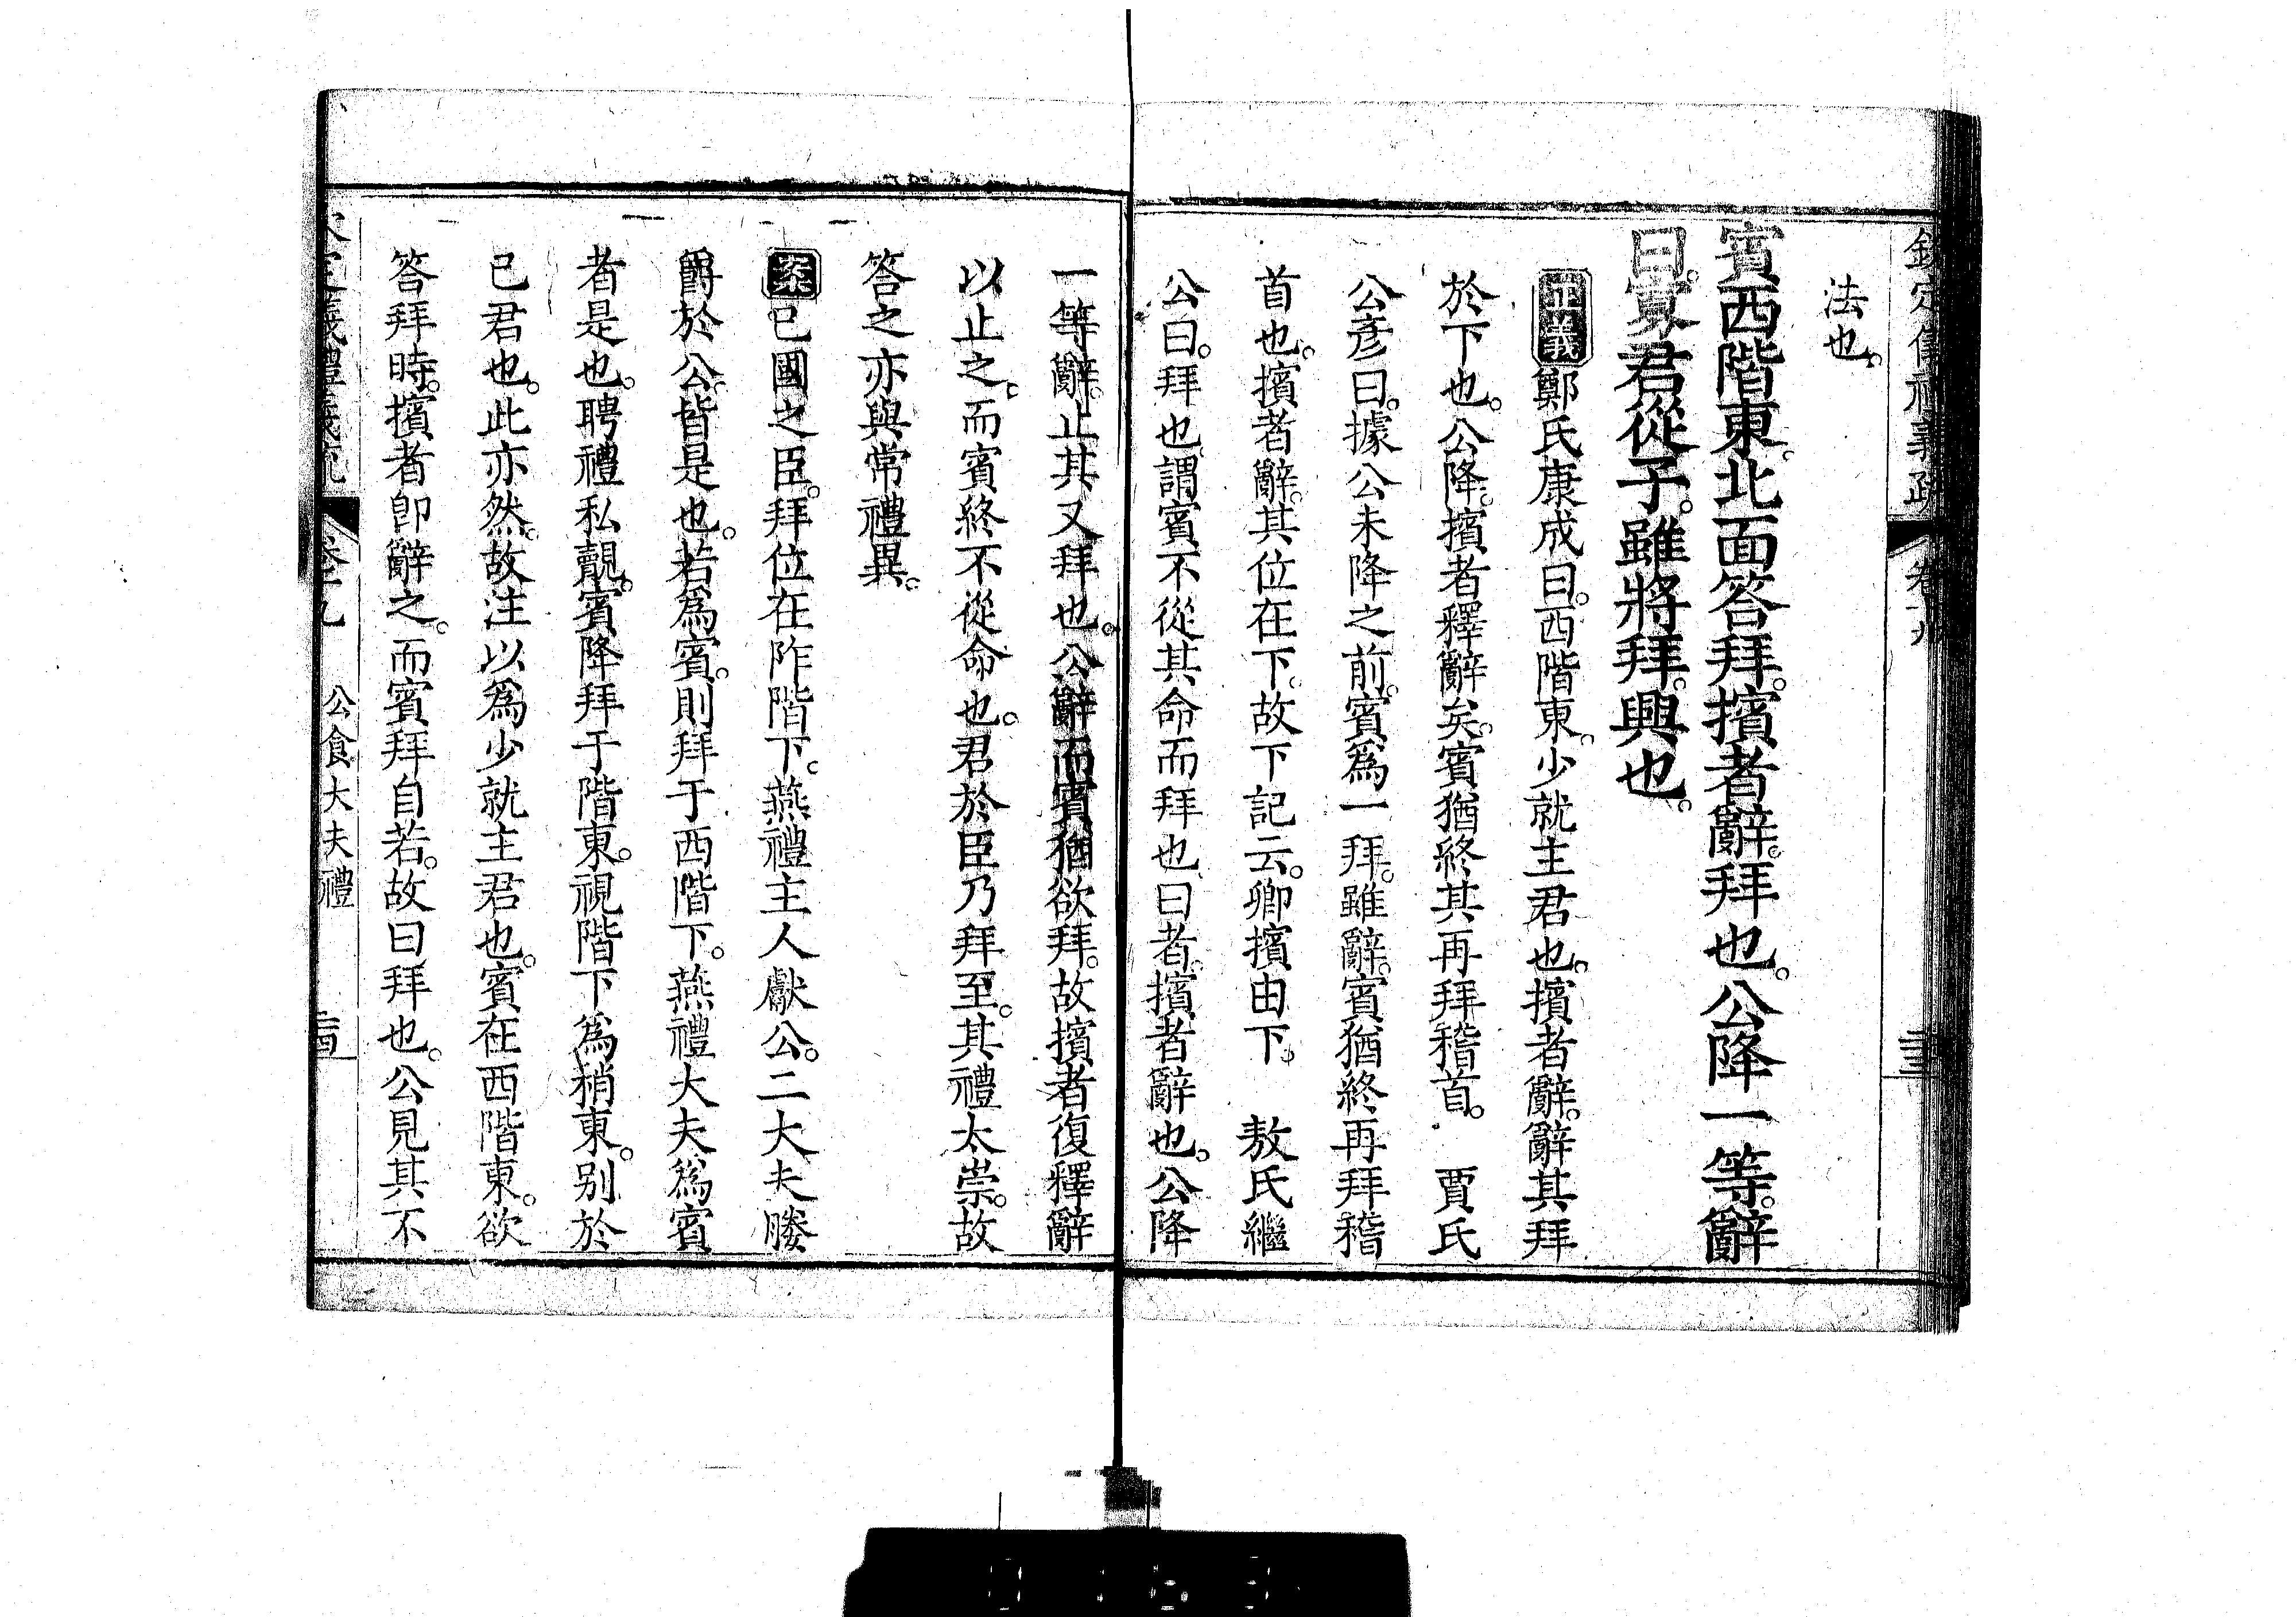 欽定儀禮義疏 卷十九
法也。
賓西階東。北面答拜。擯者辭。拜也。公降一等。辭
曰。寡君從子。雖將拜。興也。
正義鄭氏康成曰。西階東。少就主君也。擯者辭。辭其拜
於下也。公降。擯者釋辭矣。賓猶終其再拜稽首。 賈氏
公彥曰。據公未降之前。賓爲一拜。雖辭。賓猶終再拜稽
首也。擯者辭。其位在下。故下記云。卿擯由下。 敖氏繼
公曰。拜也。謂賓不從其命而拜也。曰者。擯者辭也。公降
一等辭。止其又拜也。公辭而賓猶欲拜。故擯者復釋辭
以止之。而賓終不從命也。君於臣乃拜至。其禮太崇。故
答之亦與常禮異。
案已國之臣。拜位在阼階下。燕禮主人獻公。二大夫媵
爵於公。皆是也。若爲賓。則拜于西階下。燕禮大夫爲賓
者是也。聘禮私覿。賓降拜于階東。視階下爲稍東。别於
已君也。此亦然。故注以爲少就主君也。賓在西階東。欲
答拜時。擯者卽辭之。而賓拜自若。故曰拜也。公見其不
公食大夫禮